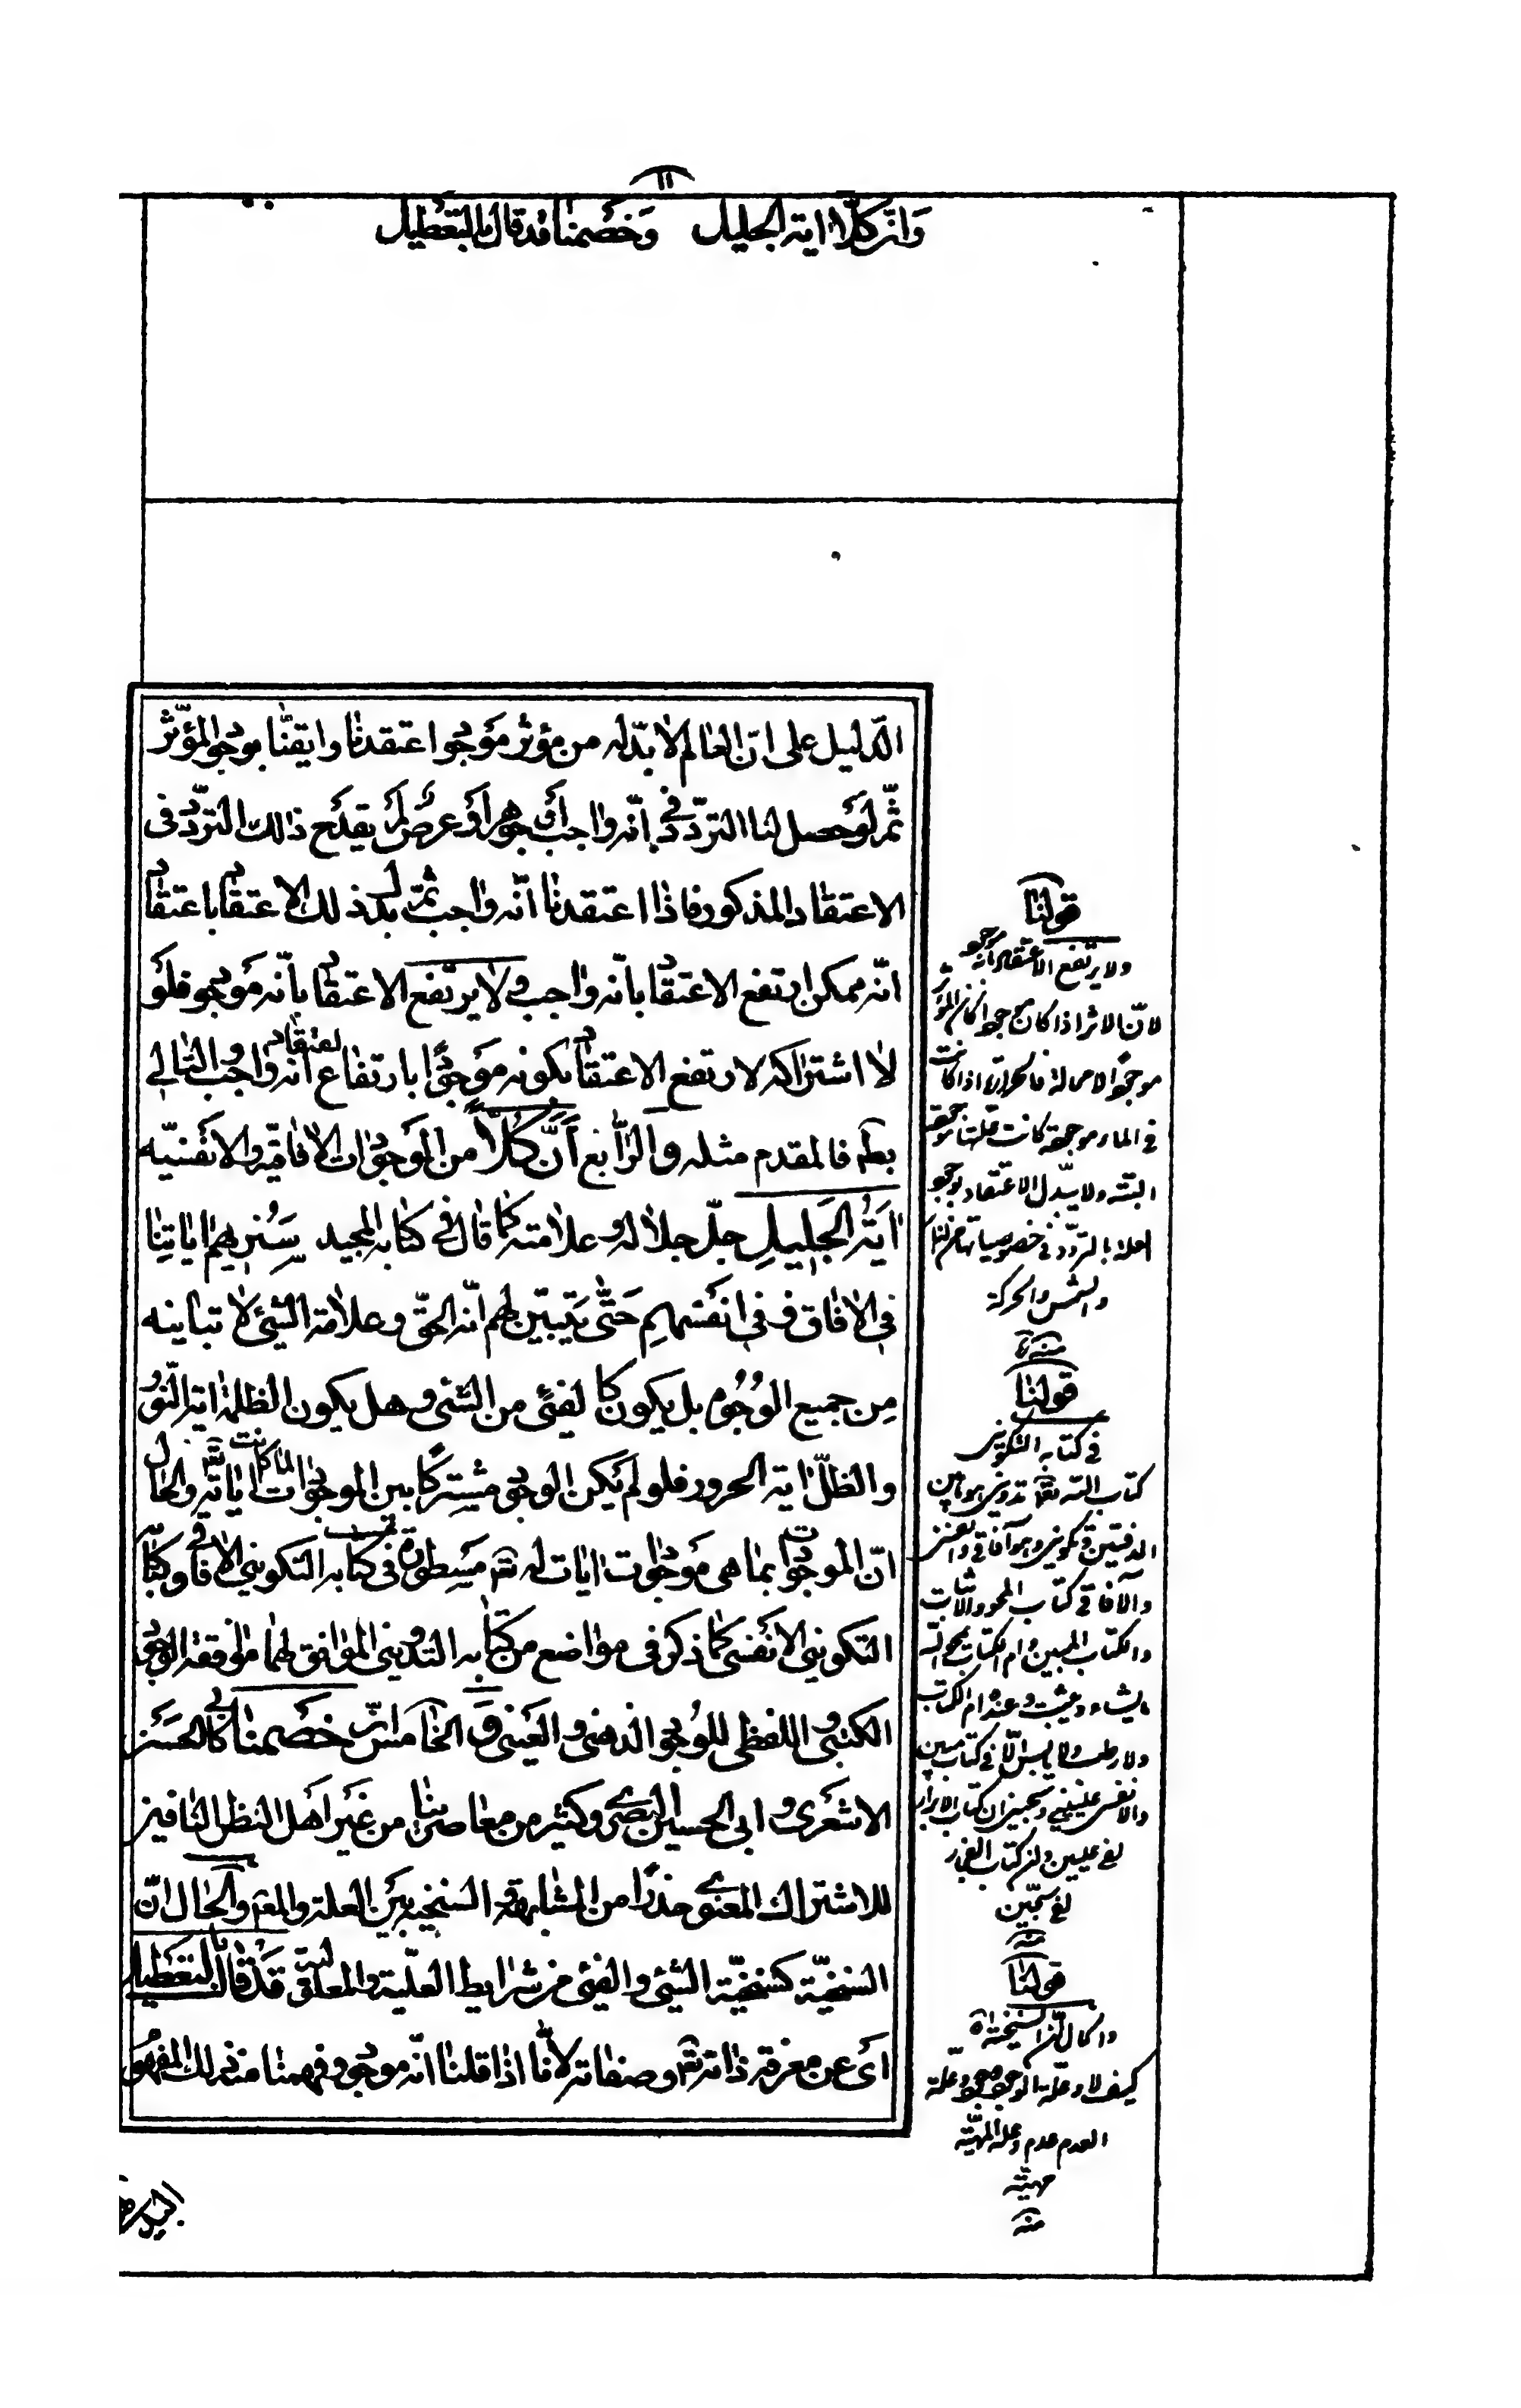 ١١
وَانّ كلّا اية الجليل وَخَصمنا قد قال بالتعطيل
الدّليل على انّ العالم لا بدّ له من مؤثر موجود اعتقدنا وايقنّا بوجود المؤثّر
ثمّ لو حصل لنا التردّد فى انّه واجب او جوهر او عرض لم يقدح ذلك التردّد فى
الاعتقاد المذكور فاذا اعتقدنا انّه واجب ثمّ بدل ذلك الاعتقاد باعتقاد
انّه ممكن ارتفع الاعتقاد بانّه واجب ولا يرتفع الاعتقاد بانّه موجود فلو
لا اشتراكه لارتفع الاعتقاد بكونه موجودًا بارتفاع اعتقاد انّه واجب والتالى
بط فالمقدم مثله والرّابع انَّ كلّاً من الموجودات الافاقيّه والانفسيّه
اية الجَليلِ جلّ جلاله وعلامته كما قال فى كتابه المجيد سَنُريهم اياتِنا
فى الافاق وفى انفسهِم حَتّى يَتبيّن لهم انّه الحقّ وعلامة الشيئ لا تباينه
مِن جميع الوُجُوه بل يكون كالفيئ من الشئ وهل يكون الظلمة اية النّور
والظلّ اية الحرور فلو لم يَكن الوجود مشتركًا بين الموجودات لما كانت اياته تعالى والحال
انّ الموجودات بما هى موجودات ايات له تعالى مسطورة فى كتابه التكوينى الافاقى وكتابه
التكوينى الانفسى كما ذكر فى مواضع من كتابه التدوينى الموافق لهما موافقة الوجود
الكتبى واللفظى للوُجود الذهنى والعينى وَ الخامس انّ خصمنا كابى الحسن
الاشعرى وابى الحسين البصرى وكثير من معاصرينا من غير اهل النظر النافين
للاشتراك المعنوى حذرًا من المشابهة والسنخية بين العلة والمعلول والحال انّ
السنخيّة كسنخيّة الشيئ والفيئ من شرايط العلّية والمعلولية قد قال بالتّعطيل
اى عن معرفة ذاته تعالى وصفاته لانّا اذا قلنا انّه موجود وفهمنا منه ذلك المفهوم
قولنا
ولا يرتفع الاعتقاد بانه موجود
لانّ الاثر اذا كان موجودا كان المؤثر
موجودا لا محالة فالحرارة اذا كانت
فى الماء موجودة كانت علتها موجودة
البتّه ولا يبدّل الاعتقاد بوجود
العلة بالتردّد فى خصوصياتها من النار
والشمس والحركة
منه
قولنا
فى كتابه التكوينى
كتاب الله تعالى تدوينى هو ما بين
الدفتين وتكوينى وهو آفاقى وانفسى
والآفاقى كتاب المحو والاثبات
والكتاب المبين وام الكتاب يمحو الله
ما يشاء ويثبت وعنده ام الكتاب
ولا رطب ولا يابس الّا فى كتاب مبين
والانفسى علّيينى وسجّينى ان كتاب الابرار
لفى عليين وان كتاب الفجار
لفى سجّين
منه
قولنا
والحال انّ السنخيّة اه
كيف لا وعلّة الوجود وجود وعلّة
العدم عدم وعلة المهيّة
مهيّة
منه